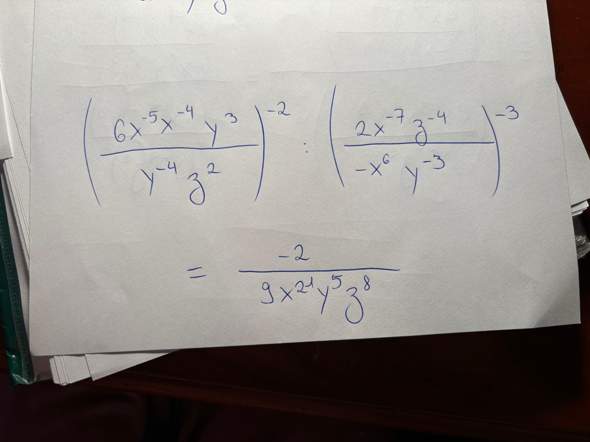 (6x⁻⁵x⁻⁴y³ / y⁻⁴z²)⁻² : (2x⁻⁷z⁻⁴ / -x⁶y⁻³)⁻³
= -2 / 9x²¹y⁵z⁸